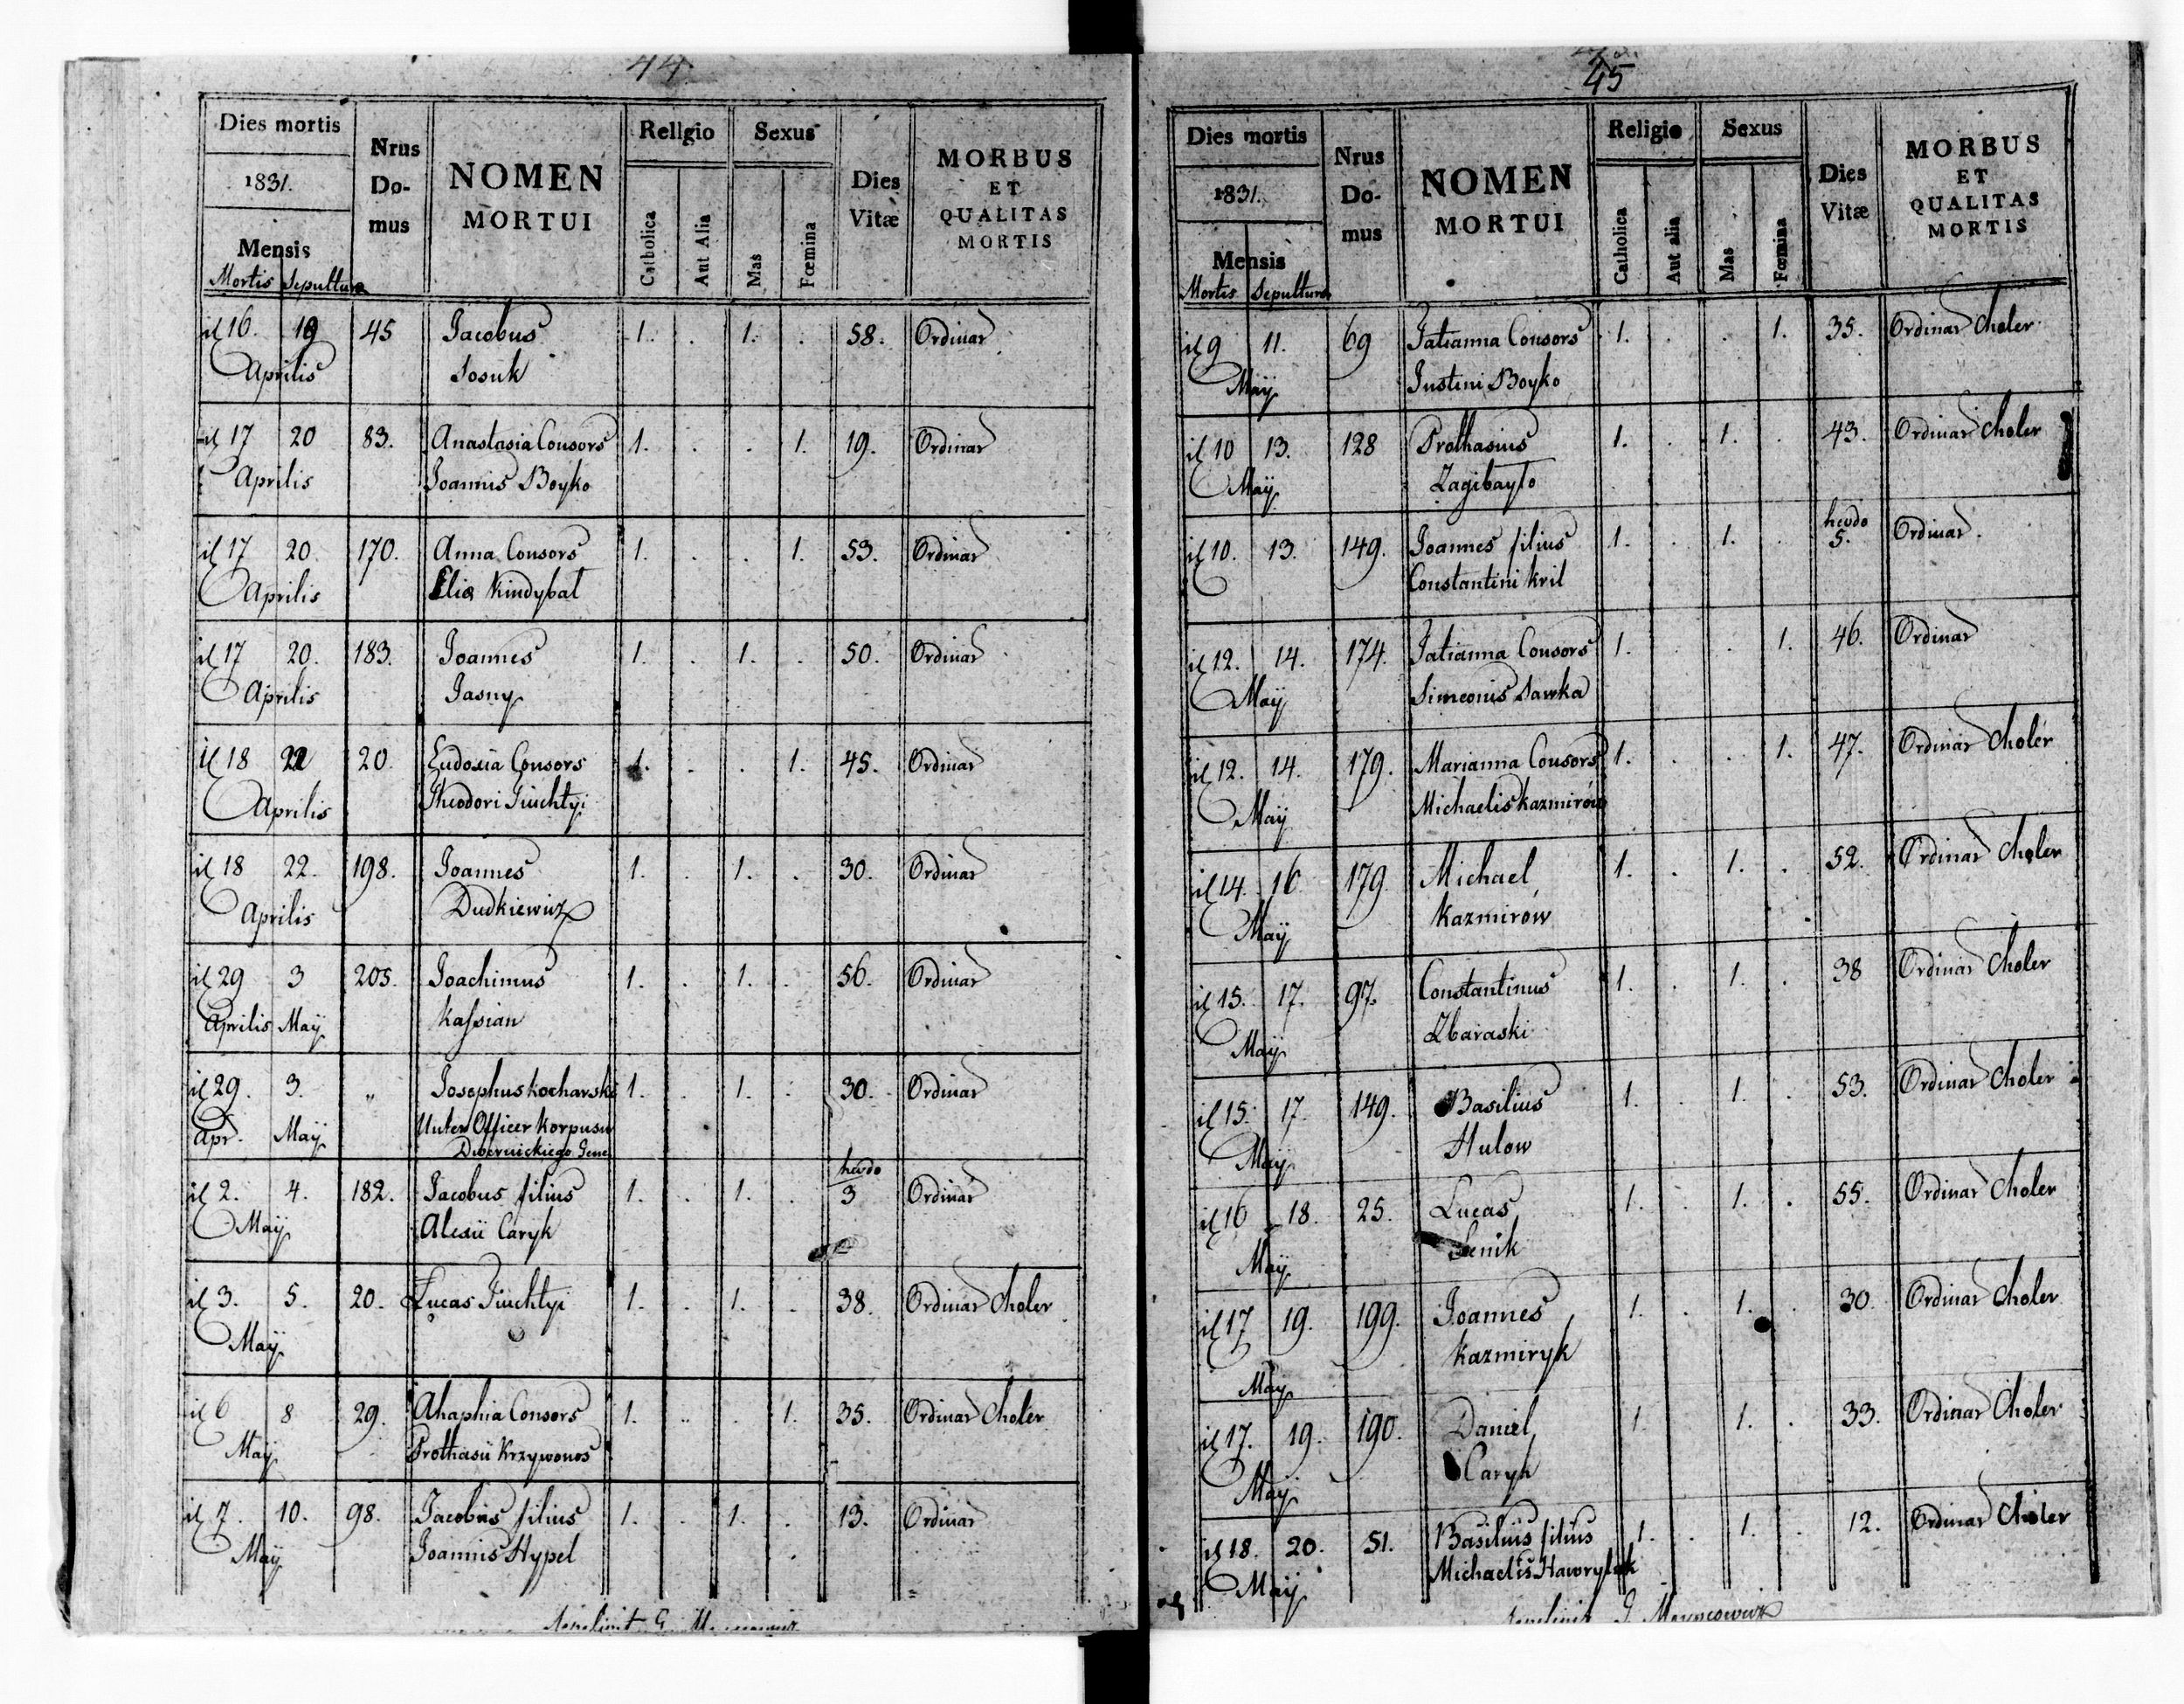 44
Dies mortis
1831.
Mensis
Mortis Sepulturæ
Nrus Domus
NOMEN
MORTUI
Religio
Catholica
Aut Alia
Sexus
Mas
Fœmina
Dies
Vitæ
MORBUS
ET
QUALITAS
MORTIS
il 16. 19 45 Jacobus 1. . 1. . 58. Ordinar
Aprilis Sosuk
il 17 20 83. Anastasia Consors 1. . . 1. 19. Ordinar
Aprilis Joannis Boyko
il 17 20. 170. Anna Consors 1. . . 1. 53. Ordinar
Aprilis Eliæ Kindybal
il 17 20. 183. Joannes 1. . 1. . 50. Ordinar
Aprilis Jasny
il 18 22 20. Eudoxia Consors 1. . . 1. 45. Ordinar
Aprilis Theodori Tiuchtyi
il 18 22. 198. Joannes 1. . 1. . 30. Ordinar
Aprilis Dudkiewicz
il 29 3 205. Joachimus 1. . 1. . 56. Ordinar
Aprilis Maÿ Kaſsian
il 29. 3. „ Josephus Kocharski 1. . 1. . 30. Ordinar
Apr. Maÿ Unter Officer Korpusu
Dwernickiego Gene
hevdo
il 2. 4. 182. Jacobus filius 1. . 1. . 3 Ordinar
Maÿ Alexii Caryk
il 3. 5. 20. Lucas Tiuchtyi 1. . 1. . 38. Ordinar Choler
Maÿ
il 6 8 29. Ahaphia Consors 1. . . 1. 35. Ordinar Choler
Maÿ Prothasii Krzywonos
il 7. 10. 98. Jacobus filius 1. . 1. . 13. Ordinar
Maÿ Joannis Hypel
Sepelivit
45
Dies mortis
1831.
Mensis
Mortis Sepulturæ
Nrus Domus
NOMEN
MORTUI
Religio
Catholica
Aut alia
Sexus
Mas
Fœmina
Dies
Vitæ
MORBUS
ET
QUALITAS
MORTIS
il 9 11. 69 Tatianna Consors 1. . . 1. 35. Ordinar Choler
Maÿ Justini Boyko
il 10 13. 128 Prothasius 1. . 1. . 43. Ordinar Choler
Maÿ Zagibayło
hevdo
il 10. 13. 149. Joannes filius 1. . 1. . 5. Ordinar.
Constantini Kril
il 12. 14. 174. Tatianna Consors 1. . . 1. 46. Ordinar
Maÿ Simeonis Sawka
il 12. 14. 179. Marianna Consors 1. . . 1. 47. Ordinar Choler
Maÿ Michaelis Kazmirów
il 14. 16. 179. Michael 1. . 1. . 52. Ordinar Choler
Maÿ Kazmirow
il 15. 17. 97. Constantinus 1. . 1. . 38 Ordinar Choler
Maÿ Zbaraski
il 15. 17. 149. Basilius 1. . 1. . 53. Ordinar Choler
Maÿ Hulow
il 16 18. 25. Lucas 1. . 1. . 55. Ordinar Choler
Maÿ Senik
il 17 19. 199. Joannes 1. . 1. . 30. Ordinar Choler
Maÿ Kazmiryk
il 17. 19. 190. Daniel 1. . 1. . 33. Ordinar Choler
Maÿ Caryk
il 18. 20. 51. Basilius filius 1. . 1. . 12. Ordinar Choler
Maÿ Michaelis Hawrylak